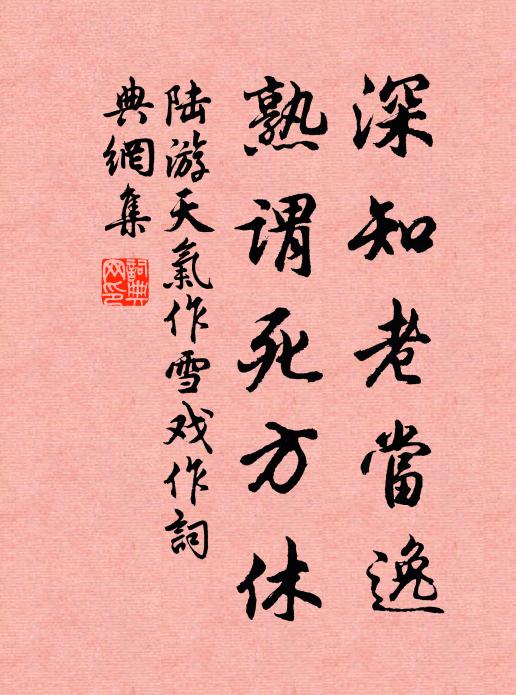 深知老當逸
熟謂死方休
陆游天氣作雪戏作詞
典網集
詞典网印